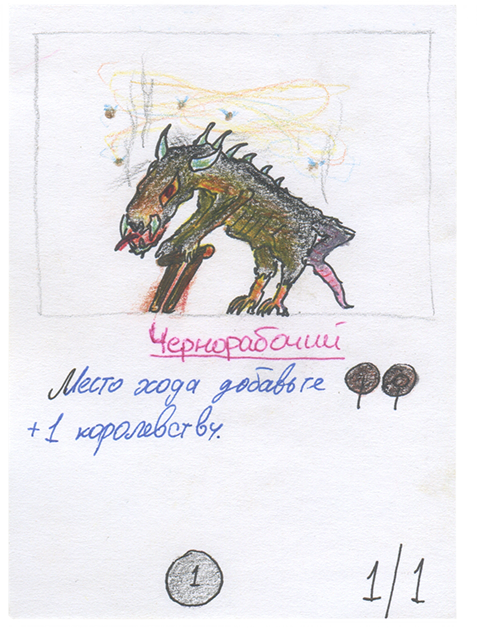 Чернорабочий
Место хода добавьте
+1 королевству.
1
1/1